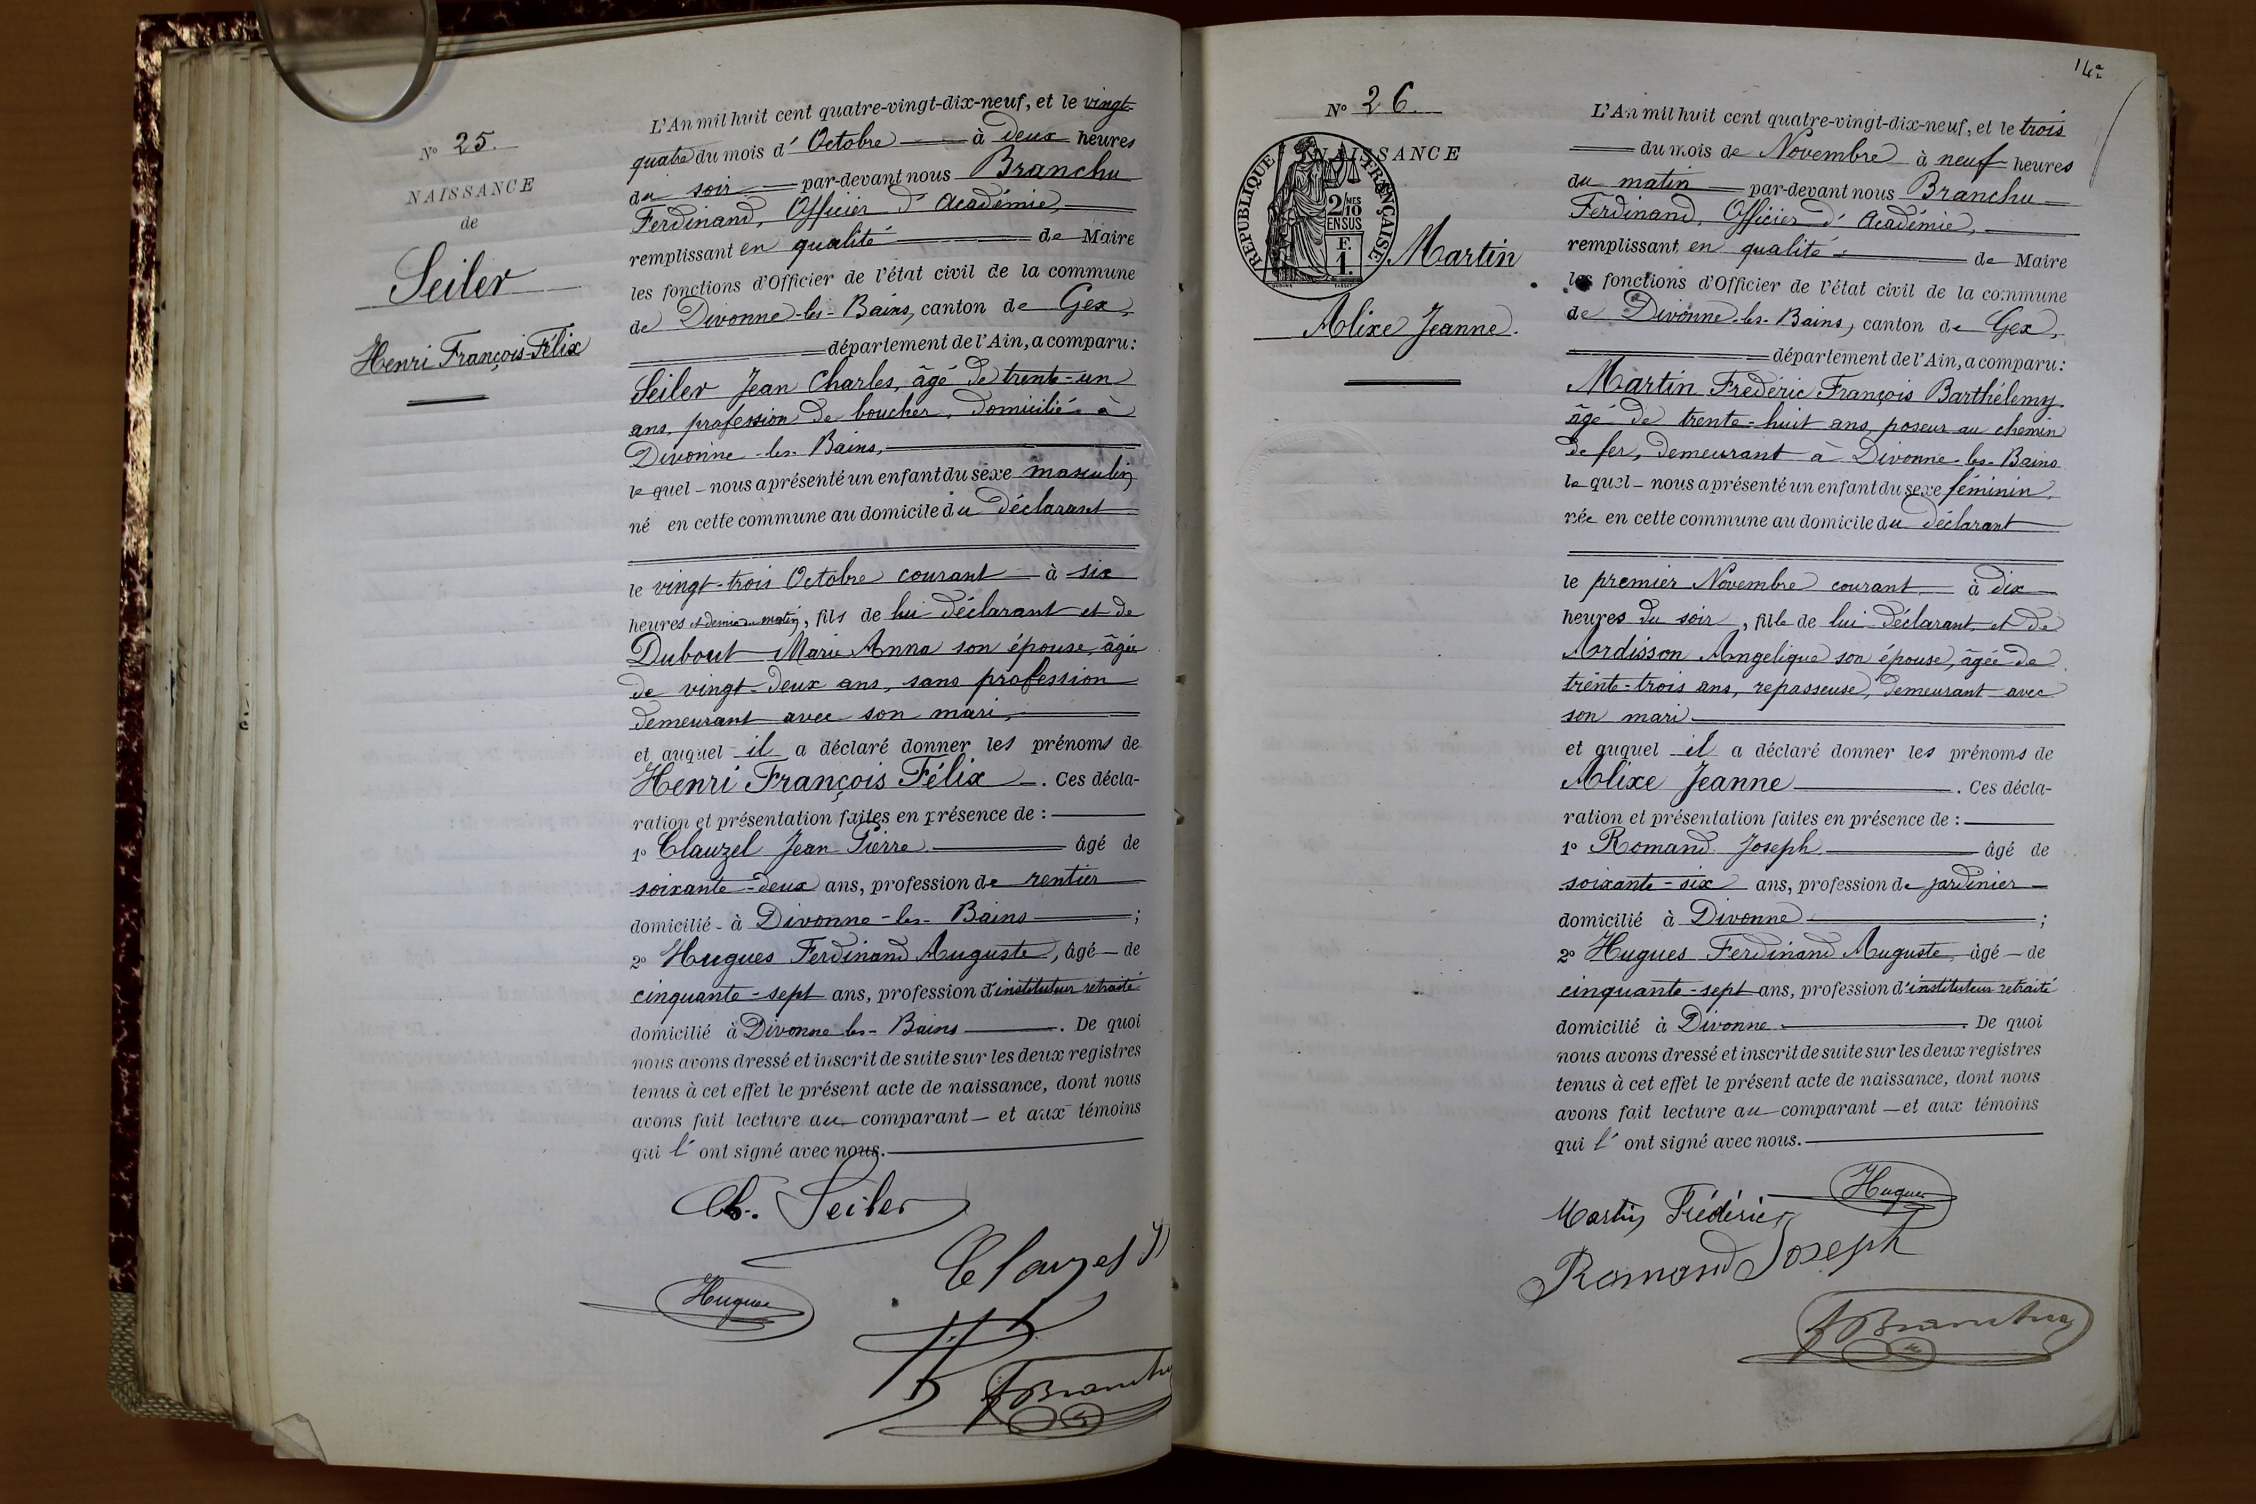 N° 25.
NAISSANCE
de
Seiler
Henri François-Félix
L'An mil huit cent quatre-vingt-dix-neuf, et le vingt-
quatre du mois d'Octobre à deux heures
du soir par-devant nous Branchu
Ferdinand, Officier d'Académie,
remplissant en qualité de Maire
les fonctions d'Officier de l'état civil de la commune
de Divonne-les-Bains, canton de Gex,
département de l'Ain, a comparu:
Seiler Jean Charles, âgé de trente-un
ans, profession de boucher, domicilié à
Divonne-les-Bains,
lequel nous a présenté un enfant du sexe masculin
né en cette commune au domicile du déclarant
le vingt-trois Octobre courant à six
heures et demie du matin, fils de lui déclarant et de
Dubout Marie Anna son épouse, âgée
de vingt-deux ans, sans profession
demeurant avec son mari,
et auquel il a déclaré donner les prénoms de
Henri François Félix. Ces décla-
ration et présentation faites en présence de :
1° Clauzel Jean Pierre âgé de
soixante-deux ans, profession de rentier
domicilié à Divonne-les-Bains ;
2° Hugues Ferdinand Auguste, âgé de
cinquante-sept ans, profession d'instituteur retraité
domicilié à Divonne-les-Bains. De quoi
nous avons dressé et inscrit de suite sur les deux registres
tenus à cet effet le présent acte de naissance, dont nous
avons fait lecture au comparant et aux témoins
qui l'ont signé avec nous.
Ch. Seiler
Clauzel
Hugues
F Branchu
14
N° 26.
NAISSANCE
RÉPUBLIQUE FRANÇAISE
2/10
MES
EN SUS
F.
1.
Martin
Alixe Jeanne.
L'An mil huit cent quatre-vingt-dix-neuf, et le trois
du mois de Novembre à neuf heures
du matin par-devant nous Branchu
Ferdinand, Officier d'Académie,
remplissant en qualité de Maire
les fonctions d'Officier de l'état civil de la commune
de Divonne-les-Bains, canton de Gex,
département de l'Ain, a comparu:
Martin Frédéric François Barthélemy
âgé de trente-huit ans, poseur au chemin
de fer, demeurant à Divonne-les-Bains
lequel nous a présenté un enfant du sexe féminin,
née en cette commune au domicile du déclarant
le premier Novembre courant à dix
heures du soir, fille de lui déclarant et de
Ardisson Angelique son épouse, âgée de
trente-trois ans, repasseuse, demeurant avec
son mari
et auquel il a déclaré donner les prénoms de
Alixe Jeanne. Ces décla-
ration et présentation faites en présence de :
1° Romand Joseph âgé de
soixante-six ans, profession de jardinier
domicilié à Divonne ;
2° Hugues Ferdinand Auguste âgé de
cinquante-sept ans, profession d'instituteur retraité
domicilié à Divonne. De quoi
nous avons dressé et inscrit de suite sur les deux registres
tenus à cet effet le présent acte de naissance, dont nous
avons fait lecture au comparant et aux témoins
qui l'ont signé avec nous.
Hugues
Martin Frédéric
Romand Joseph
F Branchu